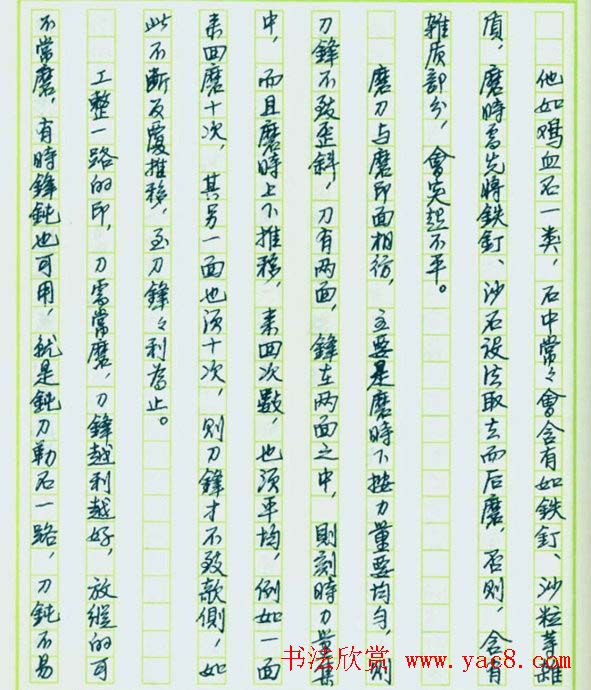 他如鸡血石一类，石中常々會含有如鉄釘、沙粒等雜
质，磨時需先將鉄釘、沙石设法取去而后磨，否則，含有
雜质部分，會突起不平。
磨刀与磨印面相彷，主要是磨時下按力量要均匀，则
刀鋒不致歪斜，刀有两面，鋒在两面之中，則刻時力量集
中，而且磨時上下推移，来回次數，也须平均，例如一面
来回磨十次，其另一面也须十次，则刀鋒才不致欹側，如
此不断反覆推移，至刀鋒々利為止。
工整一路的印，刀需常磨，刀鋒越利越好，放縱的可
不常磨，有時鋒鈍也可用，就是鈍刀勒石一路，刀鈍不易
书法欣赏 www.yac8.com